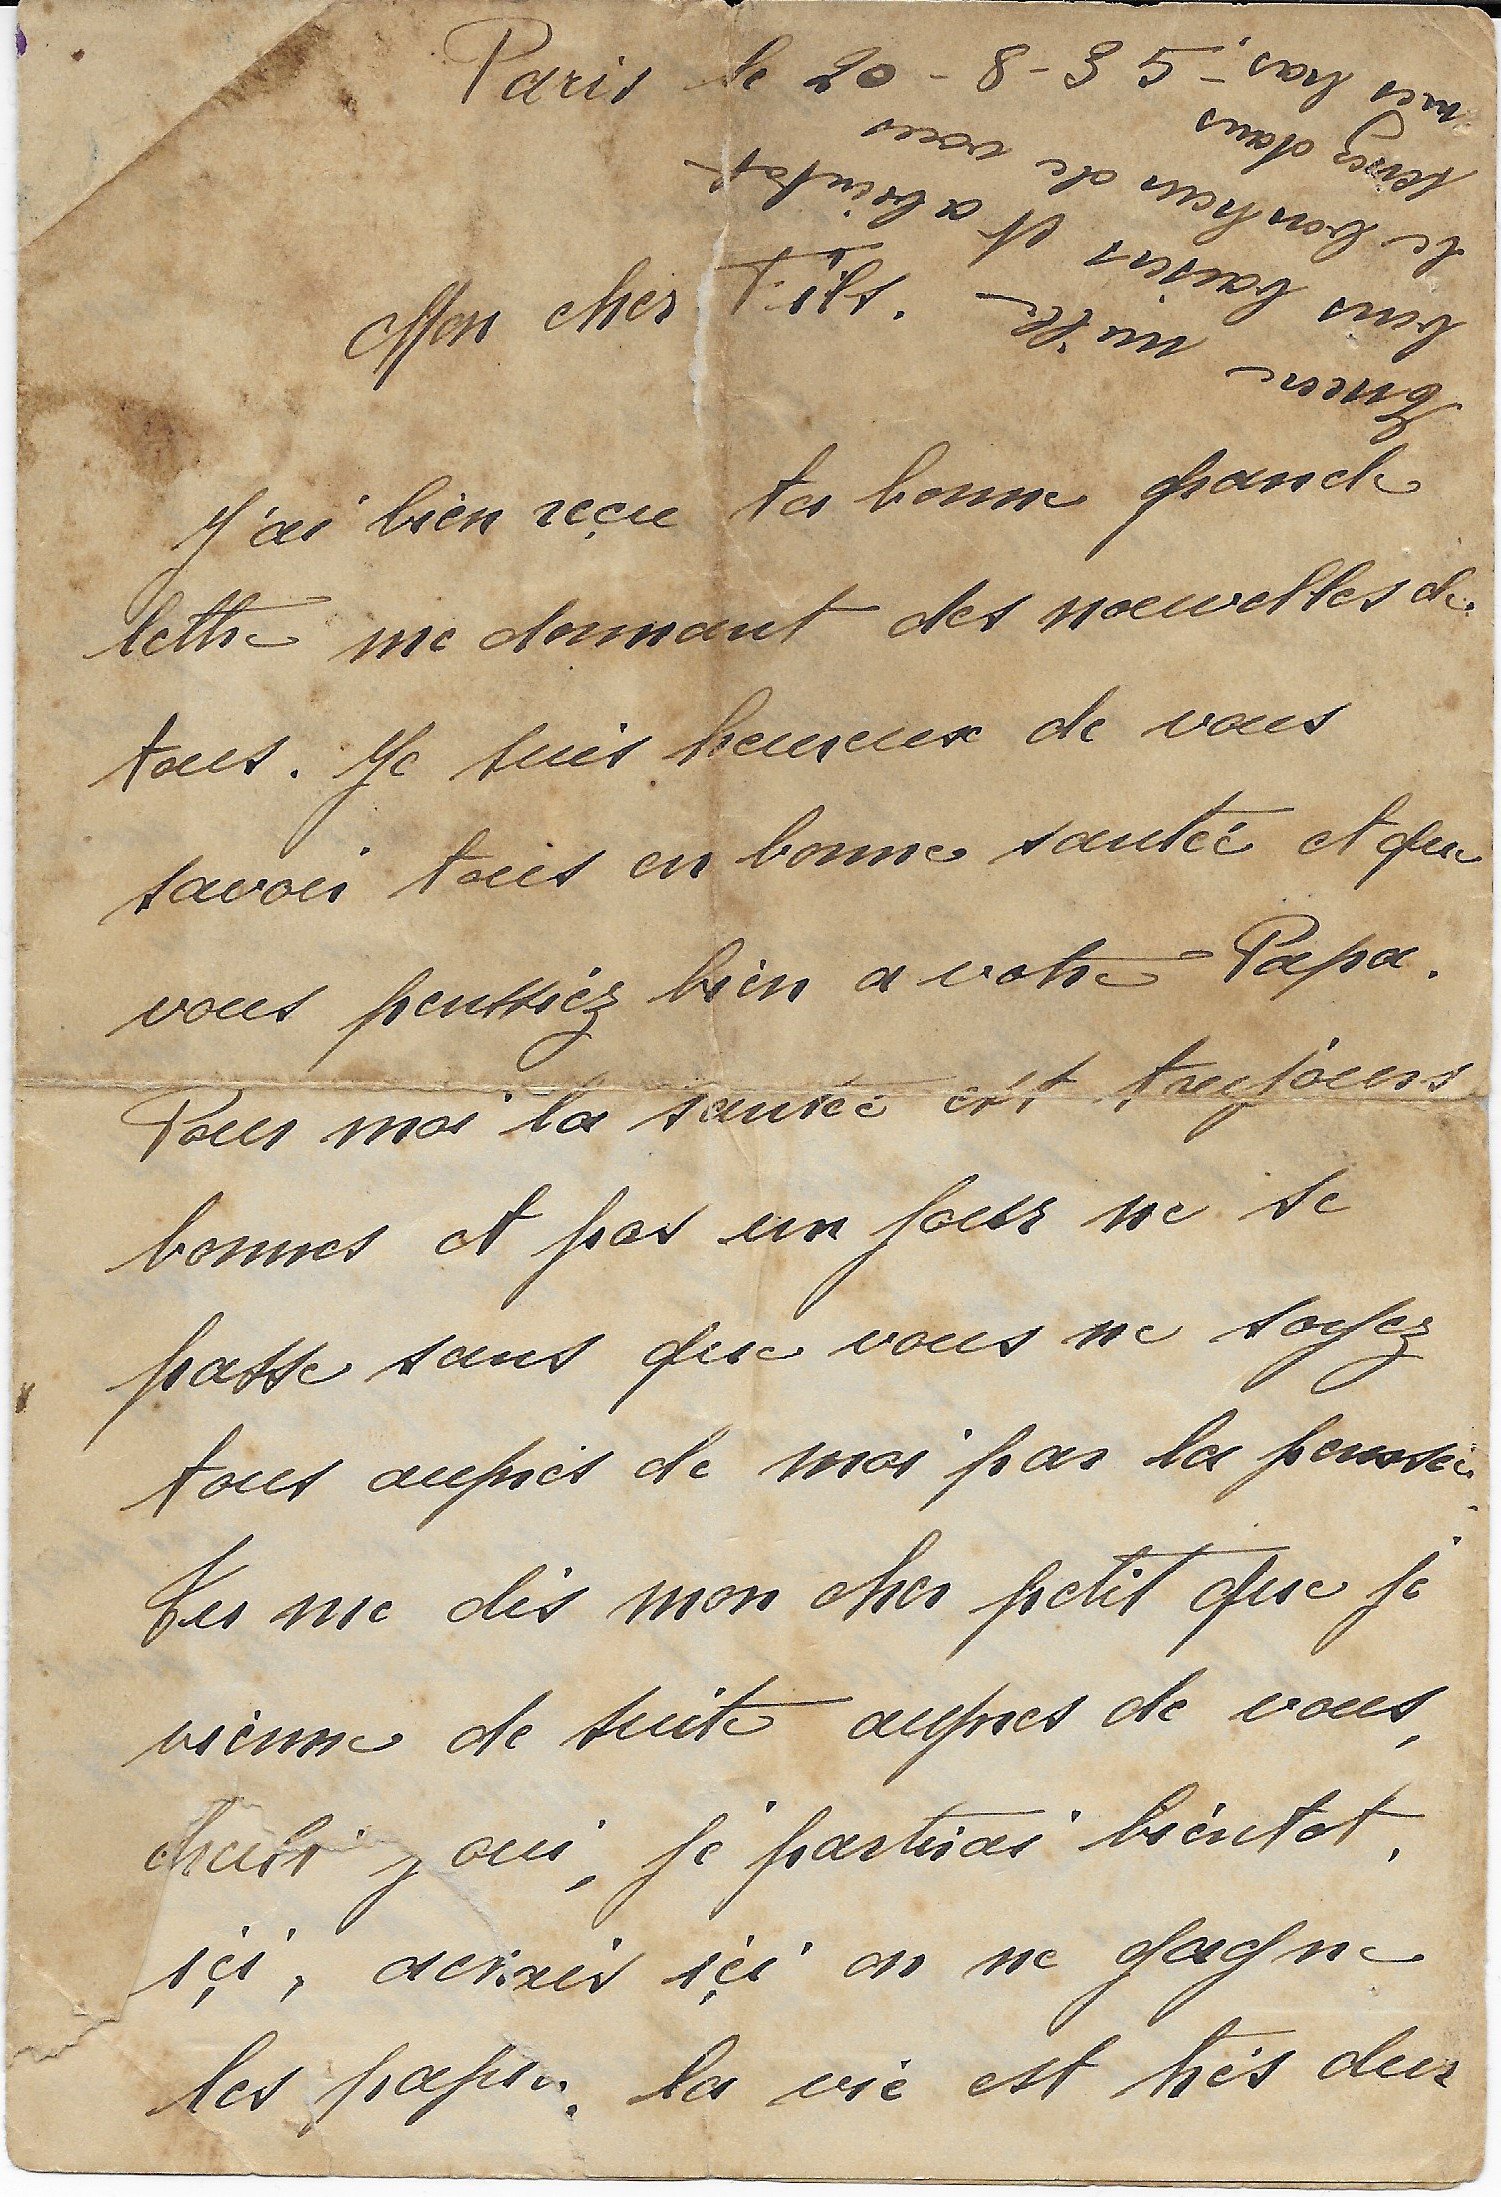 Paris le 20-8-35-
Mon cher Fils.
J'ai bien reçu ta bonne grande
lettre me donnant des nouvelles de
tous. Je suis heureux de vous
savoir tous en bonne santée et que
vous penssiéz bien a votre Papa.
Pour moi la santée est toujours
bonnes et pas un jour ne se
passe sans que vous ne soyez
tous auprès de moi par la pensée.
Tu me dis mon cher petit que je
vienne de suite auprès de vous,
oui, je partirai bientot.
içi, içi on ne gagne
les la vie est très dur
Encore mille
bons baisers et a bientot
le bonheur de vous
serrez dans
mes bras.